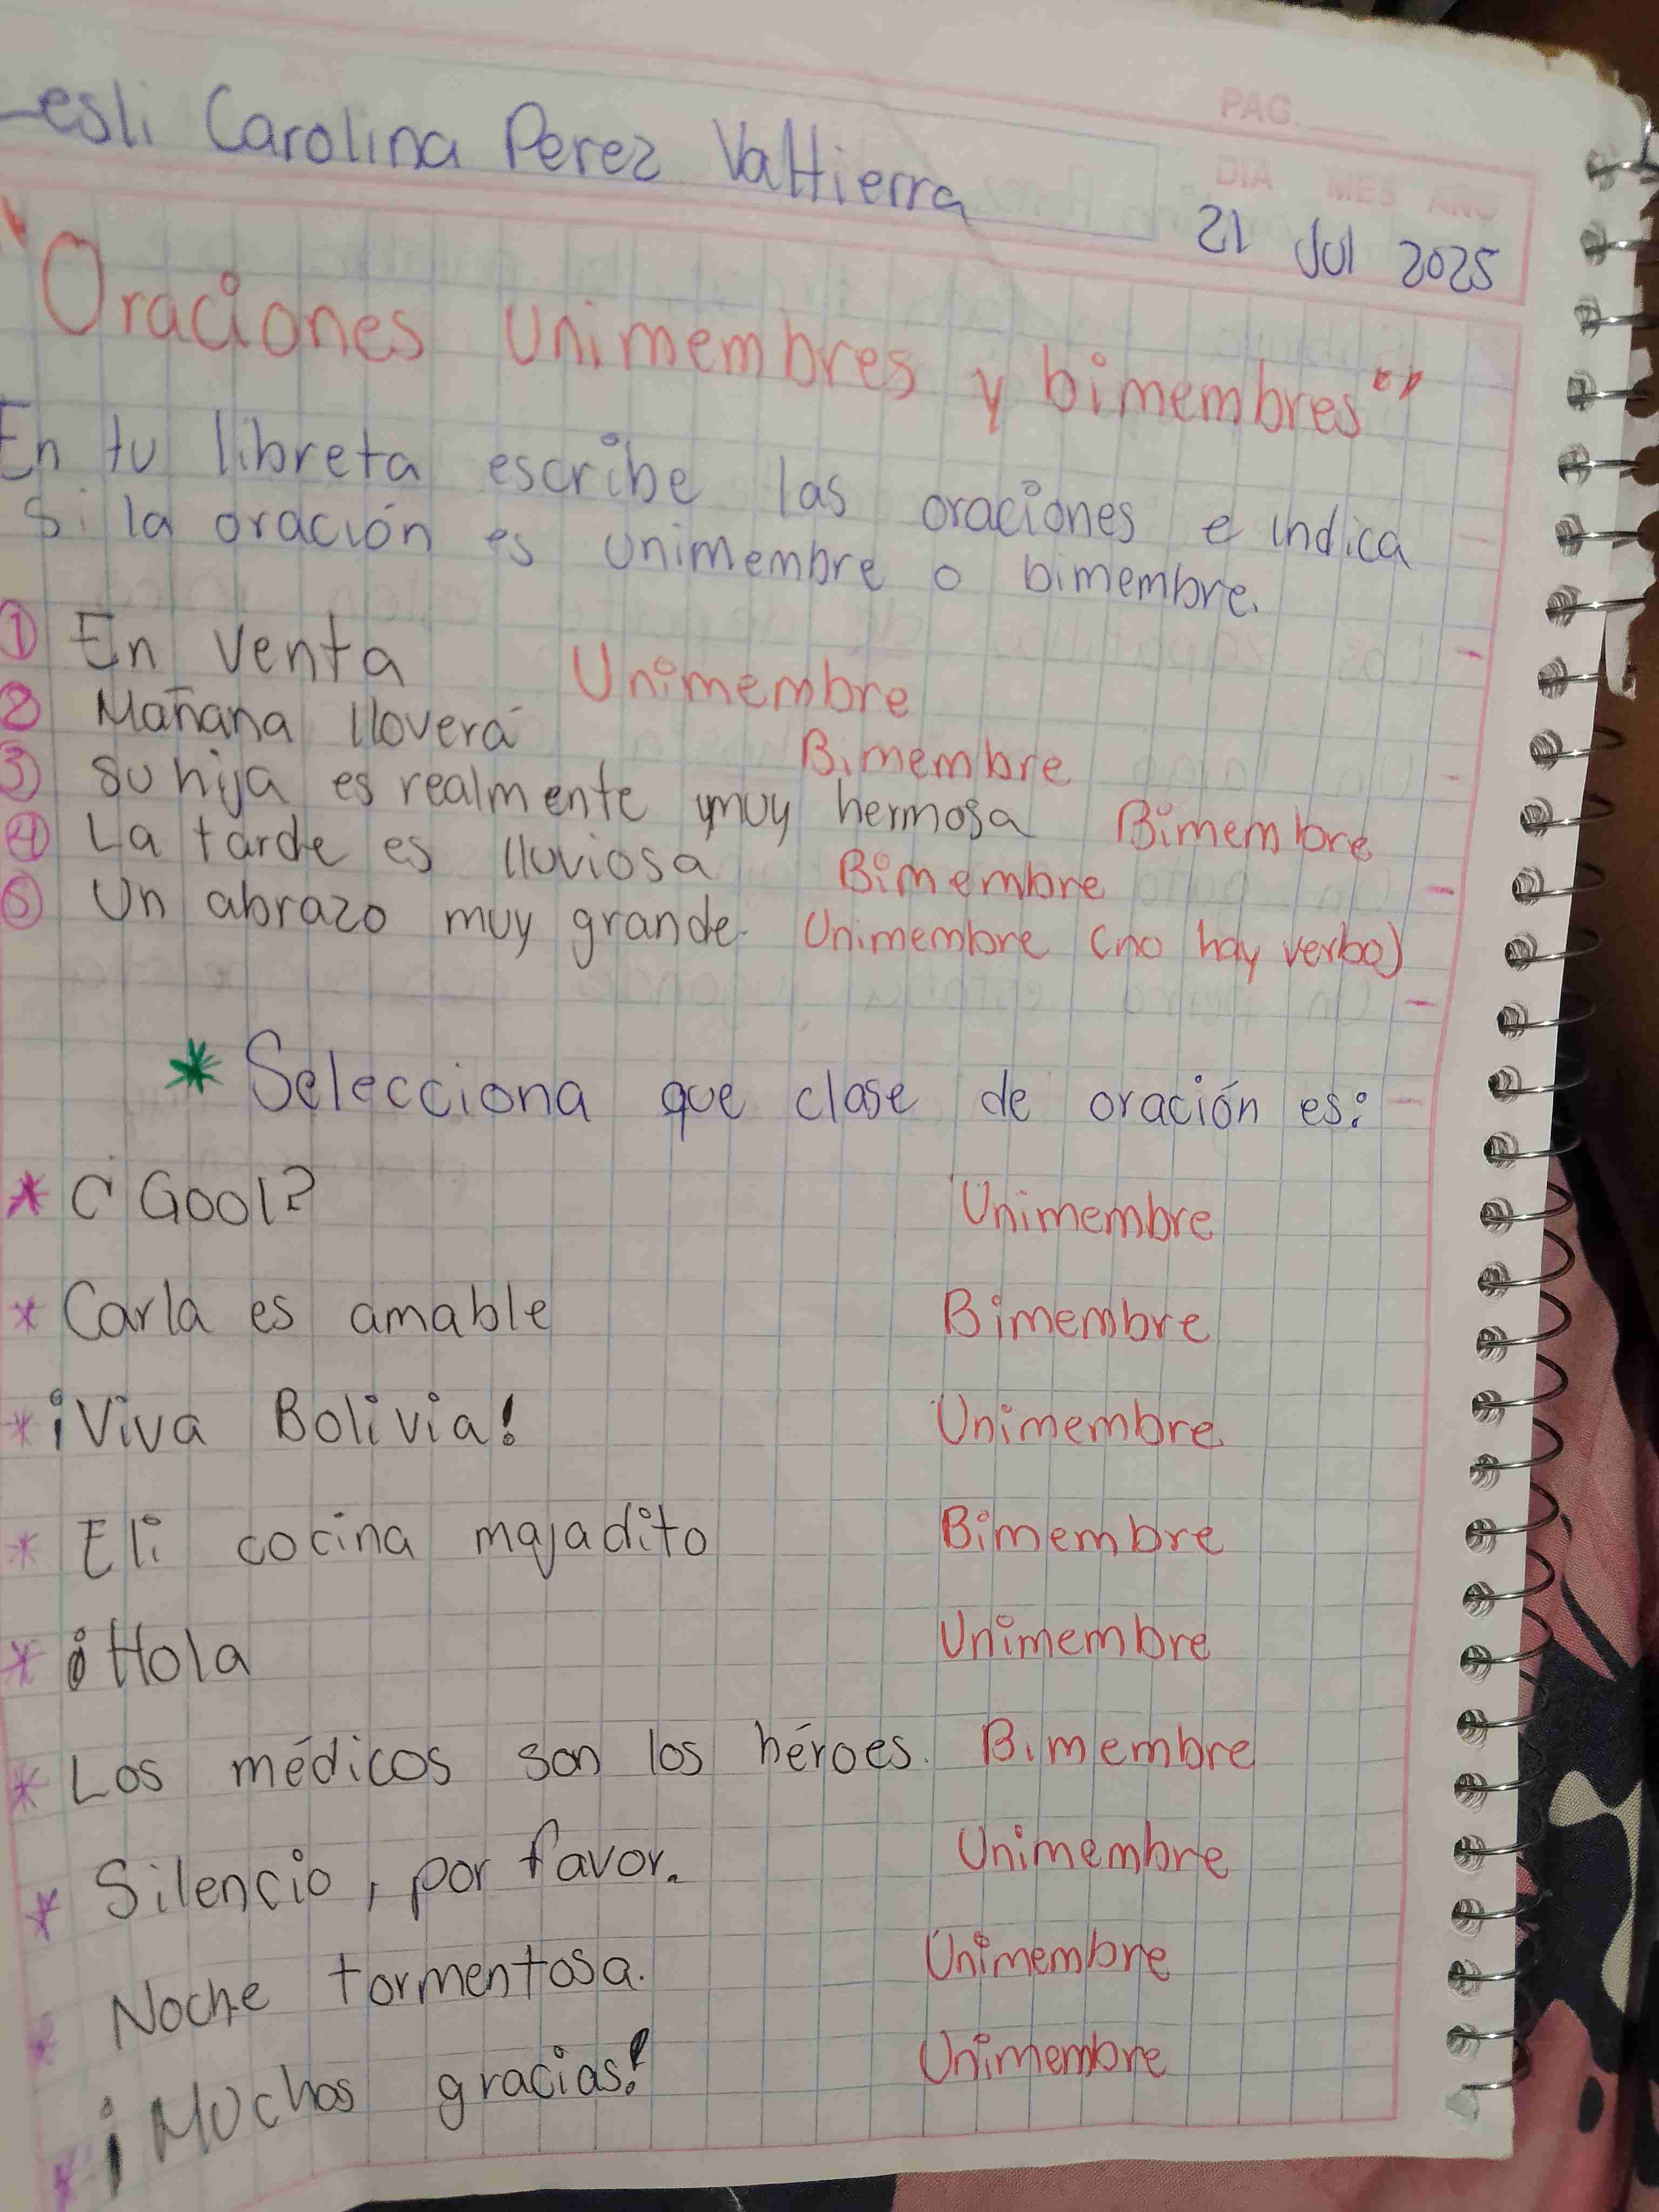 Lesli Carolina Perez Valtierra
PAG.
DIA MES AÑO
21 Jul 2025
"Oraciones unimembres y bimembres"
En tu libreta escribe las oraciones e indica
si la oración es unimembre o bimembre.
1 En venta Unimembre
2 Mañana lloverá Bimembre
3 Su hija es realmente muy hermosa Bimembre
4 La tarde es lluviosa Bimembre
5 Un abrazo muy grande. Unimembre (no hay verbo)
* Selecciona que clase de oración es:
* ¿Gool? Unimembre
* Carla es amable Bimembre
* ¡Viva Bolivia! Unimembre
* Eli cocina majadito Bimembre
* ¡Hola Unimembre
* Los médicos son los héroes. Bimembre
* Silencio, por favor. Unimembre
* Noche tormentosa. Unimembre
* ¡Muchas gracias! Unimembre